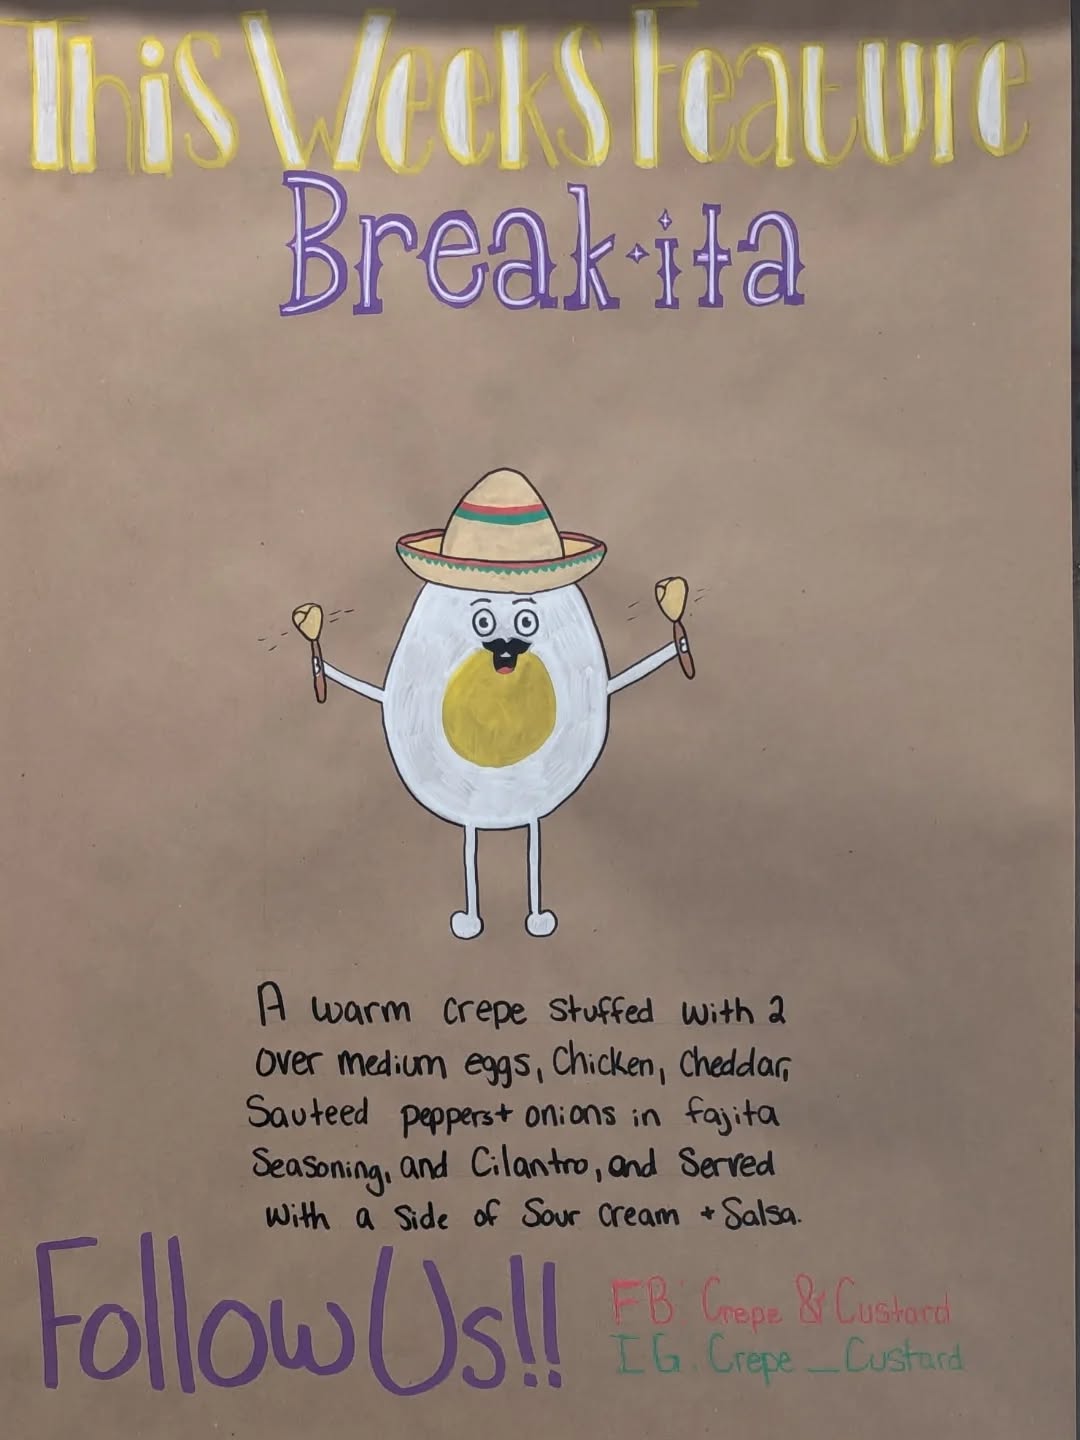 This Weeks Feature
Break•ita
A warm crepe stuffed with 2
over medium eggs, Chicken, Cheddar,
Sauteed peppers + onions in fajita
Seasoning, and Cilantro, and Served
with a side of Sour cream + Salsa.
Follow Us!!
FB: Crepe & Custard
IG: Crepe_Custard